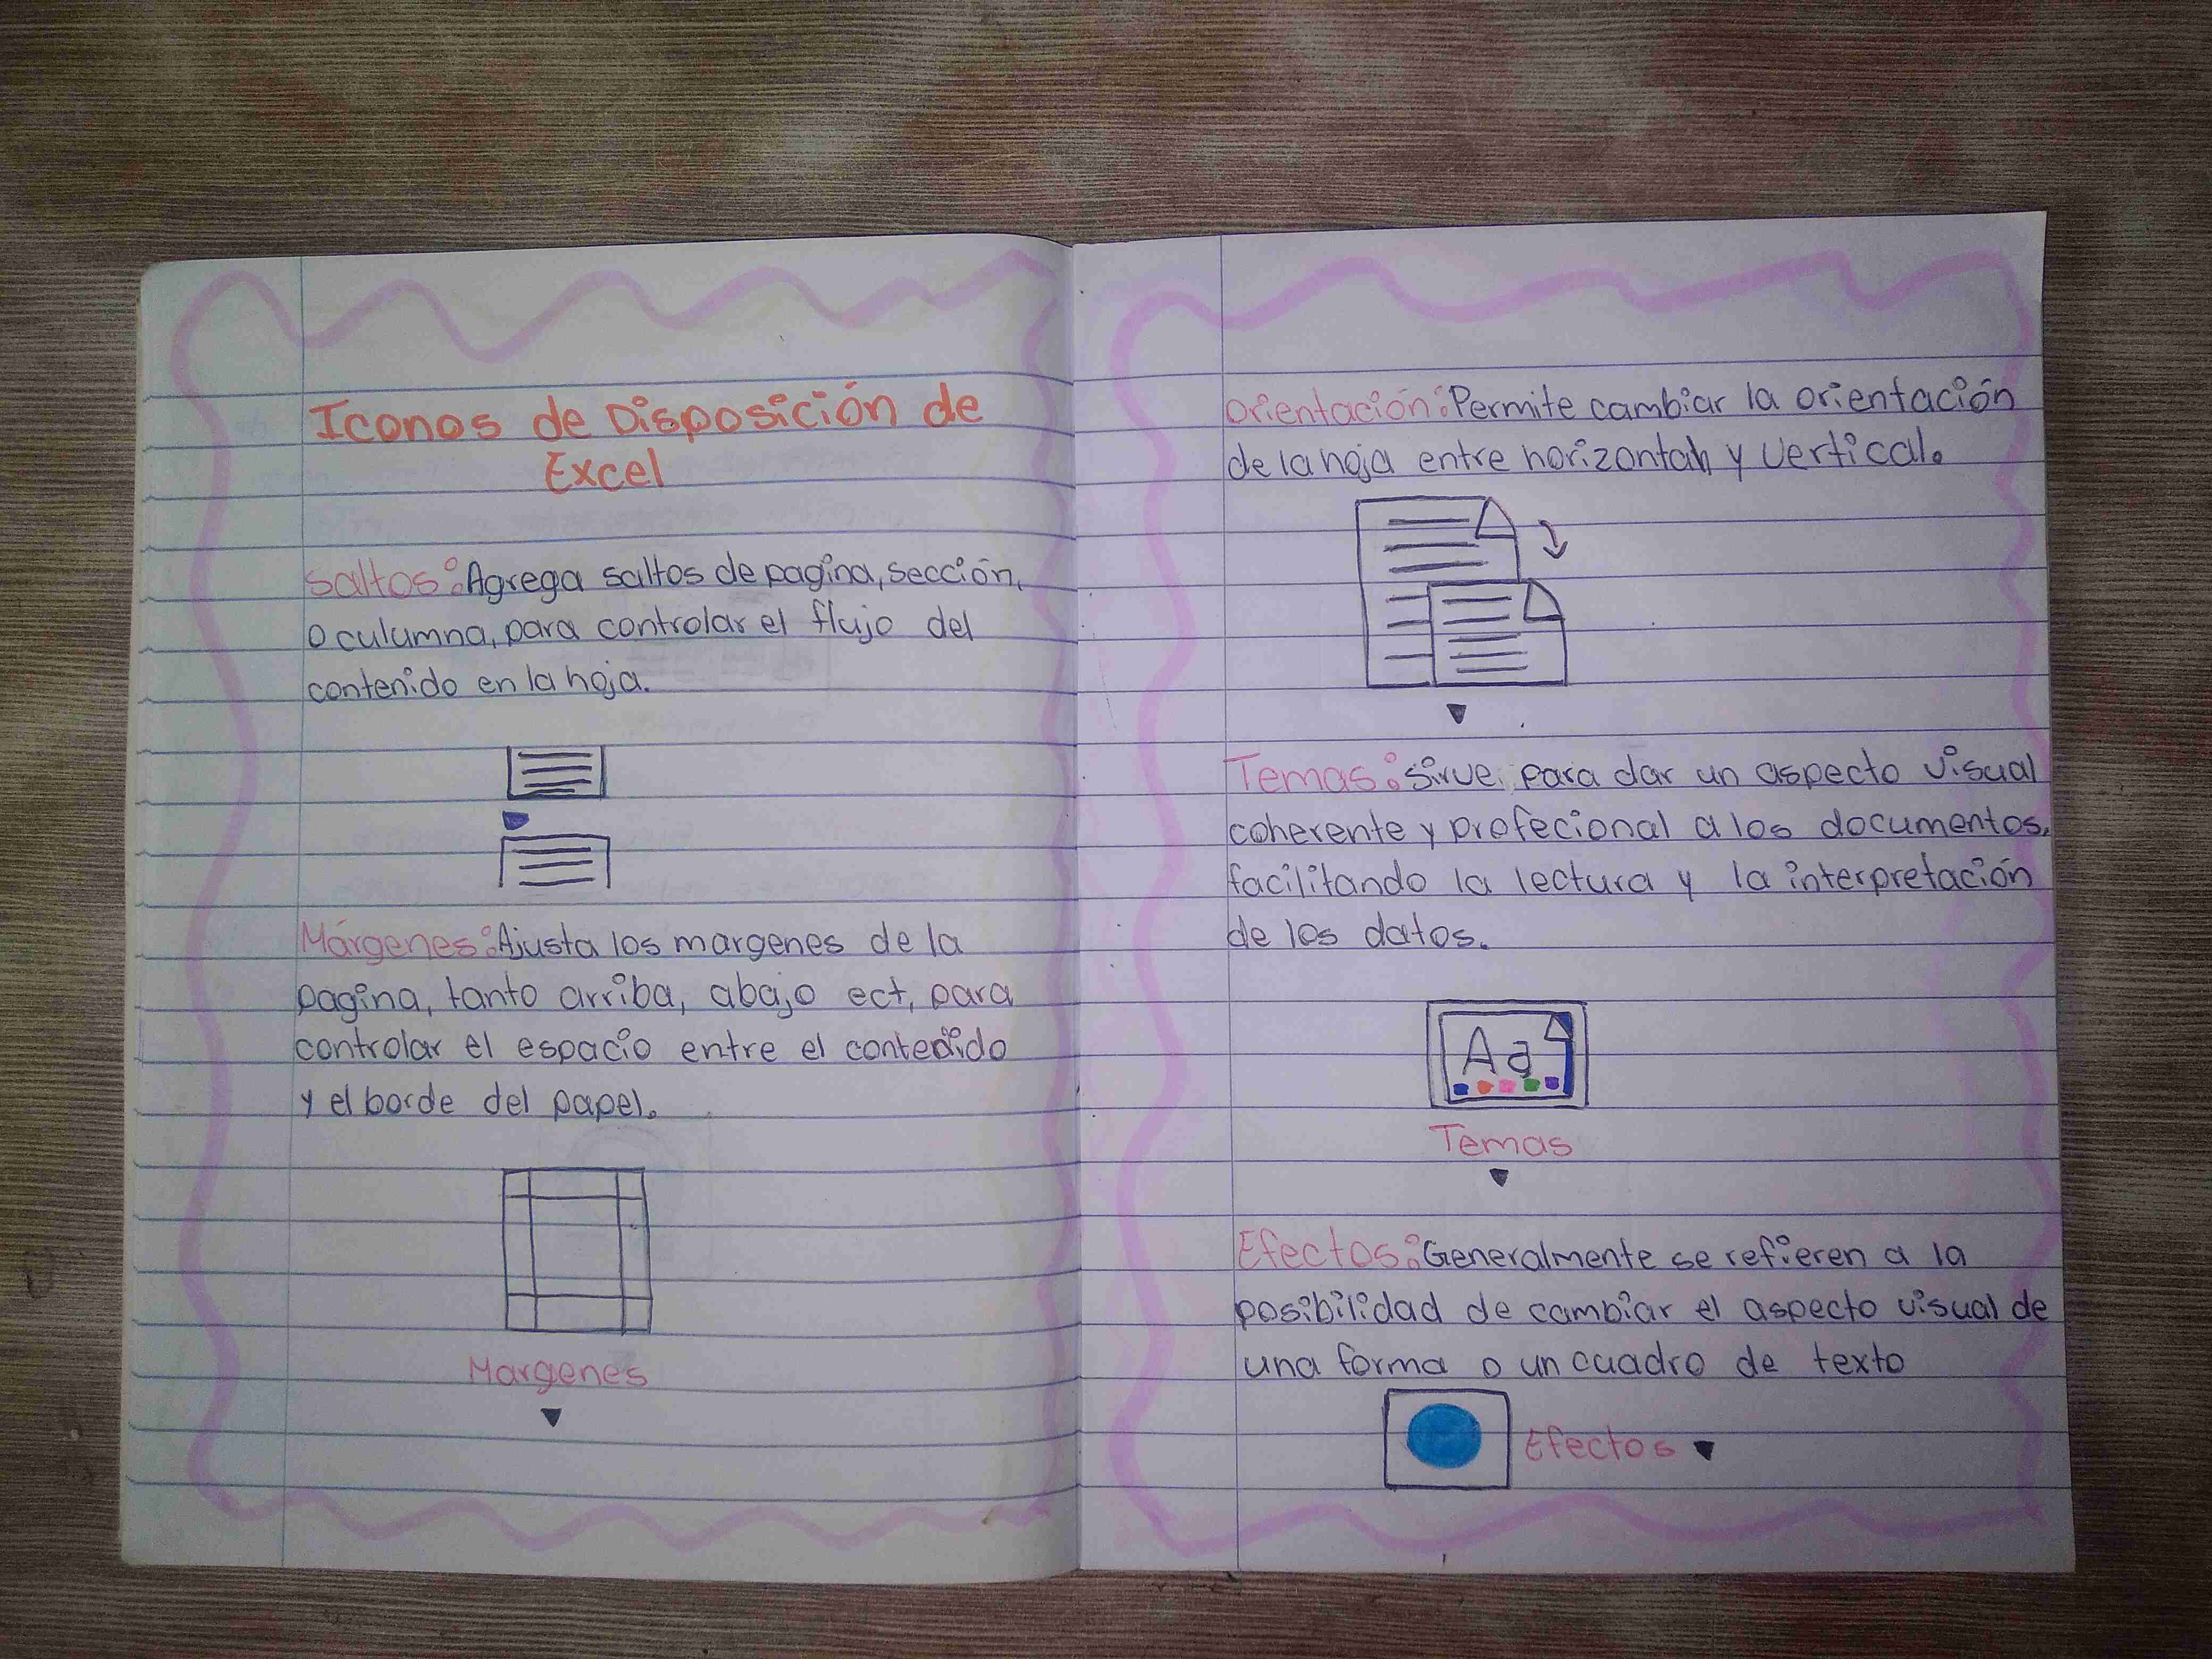 Iconos de Disposición de
Excel
Saltos: Agrega saltos de pagina, sección,
o culumna, para controlar el flujo del
contenido en la hoja.
Márgenes: Ajusta los margenes de la
pagina, tanto arriba, abajo ect, para
controlar el espacio entre el contenido
y el borde del papel.
Margenes
Orientación: Permite cambiar la orientación
de la hoja entre horizontal y vertical.
Temas: Sirve para dar un aspecto visual
coherente y profecional a los documentos,
facilitando la lectura y la interpretación
de los datos.
Aa
Temas
Efectos: Generalmente se refieren a la
posibilidad de cambiar el aspecto visual de
una forma o un cuadro de texto
Efectos